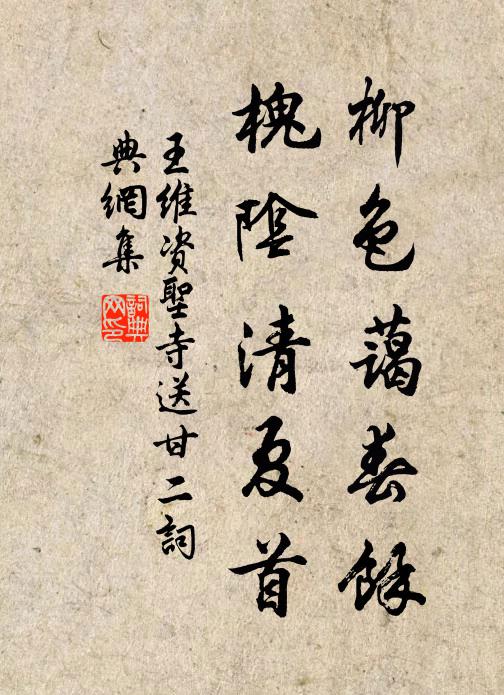 柳色藹春餘
槐陰清夏首
王維資聖寺送甘二詞
典網集
詞典網印